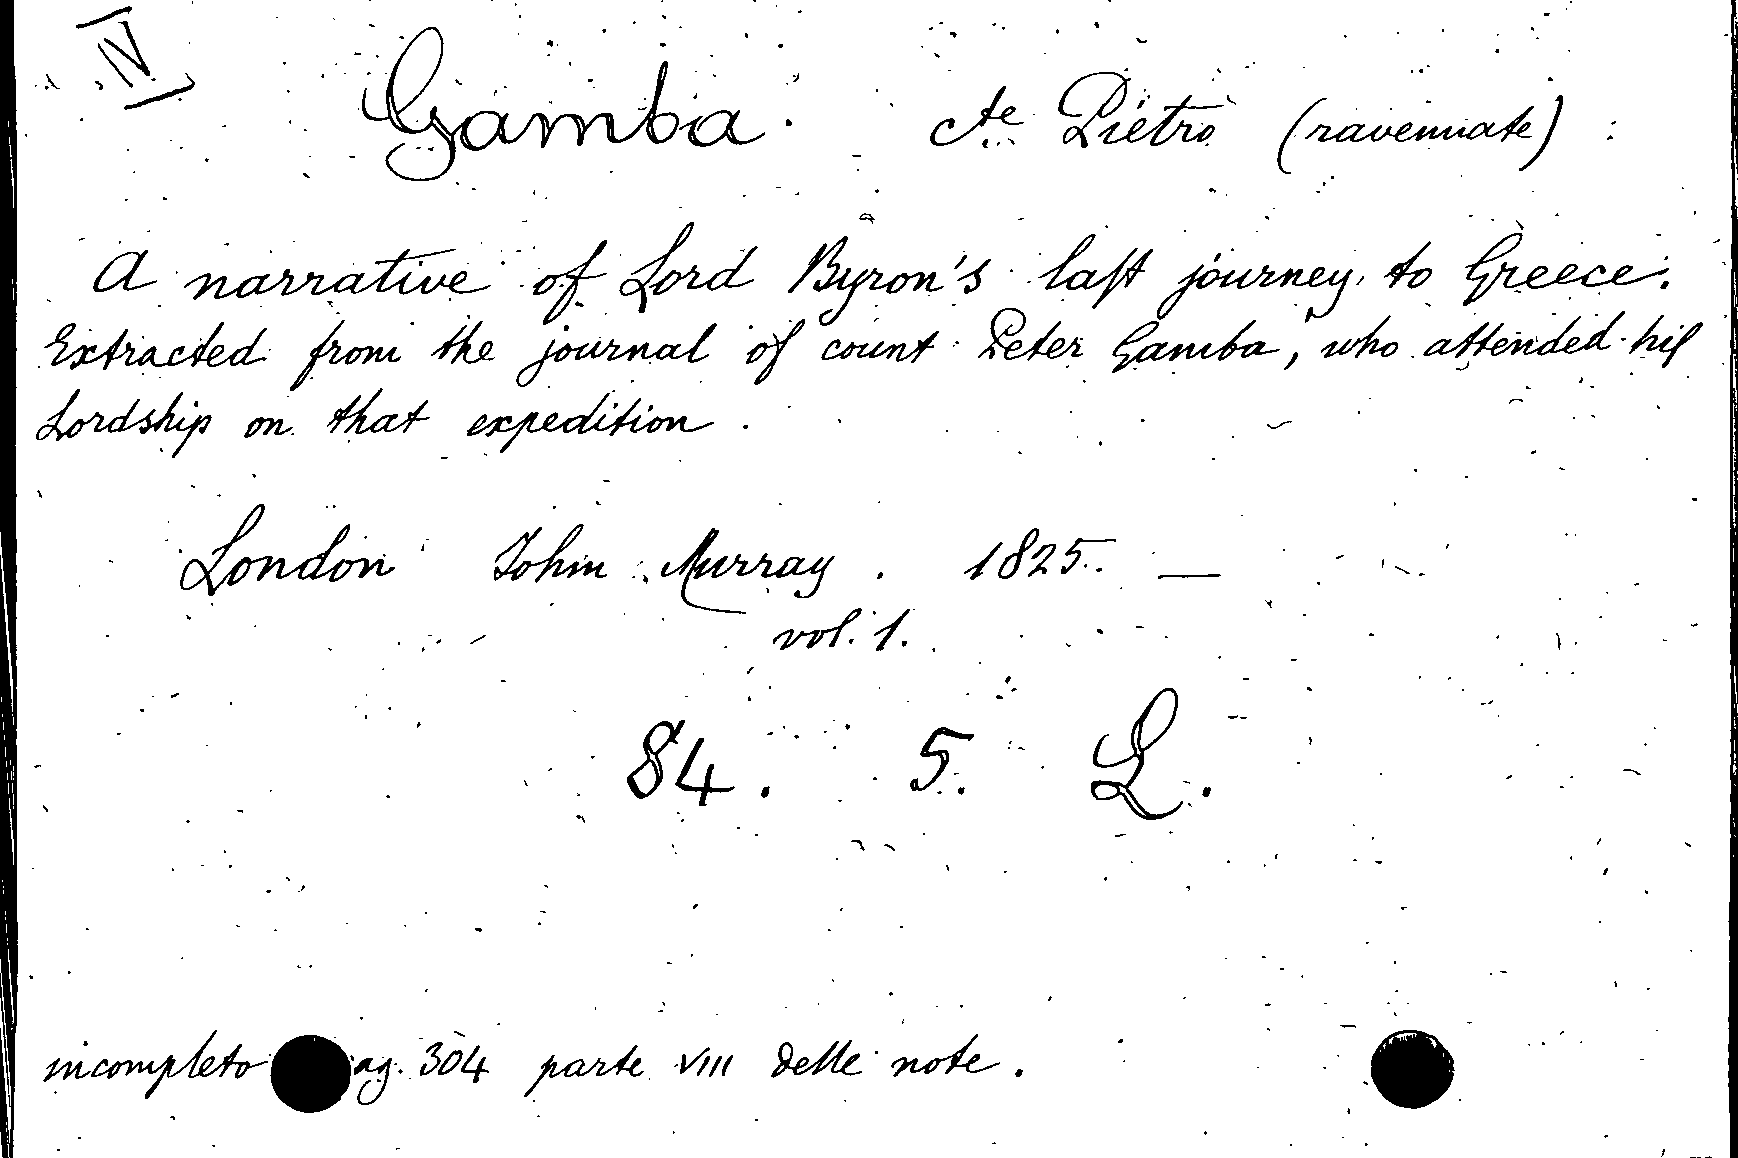 IV
Gamba. Cte Pietro (ravennate)
A narrative of Lord Byron's last journey to Greece.
Extracted from the journal of count Peter Gamba, who attended his
Lordship on that expedition.
London John Murray. 1825. —
vol. 1.
84. 5. L.
incompleto ag. 304 parte VIII delle note.